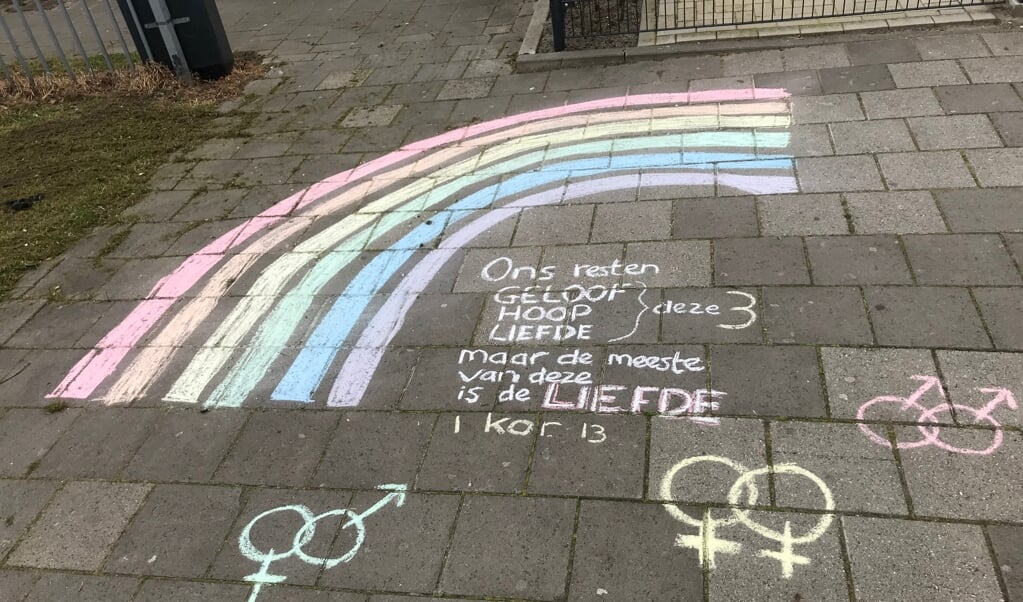 Ons resten
GELOOF
HOOP
LIEFDE
deze 3
maar de meeste
van deze
is de LIEFDE
1 kor 13